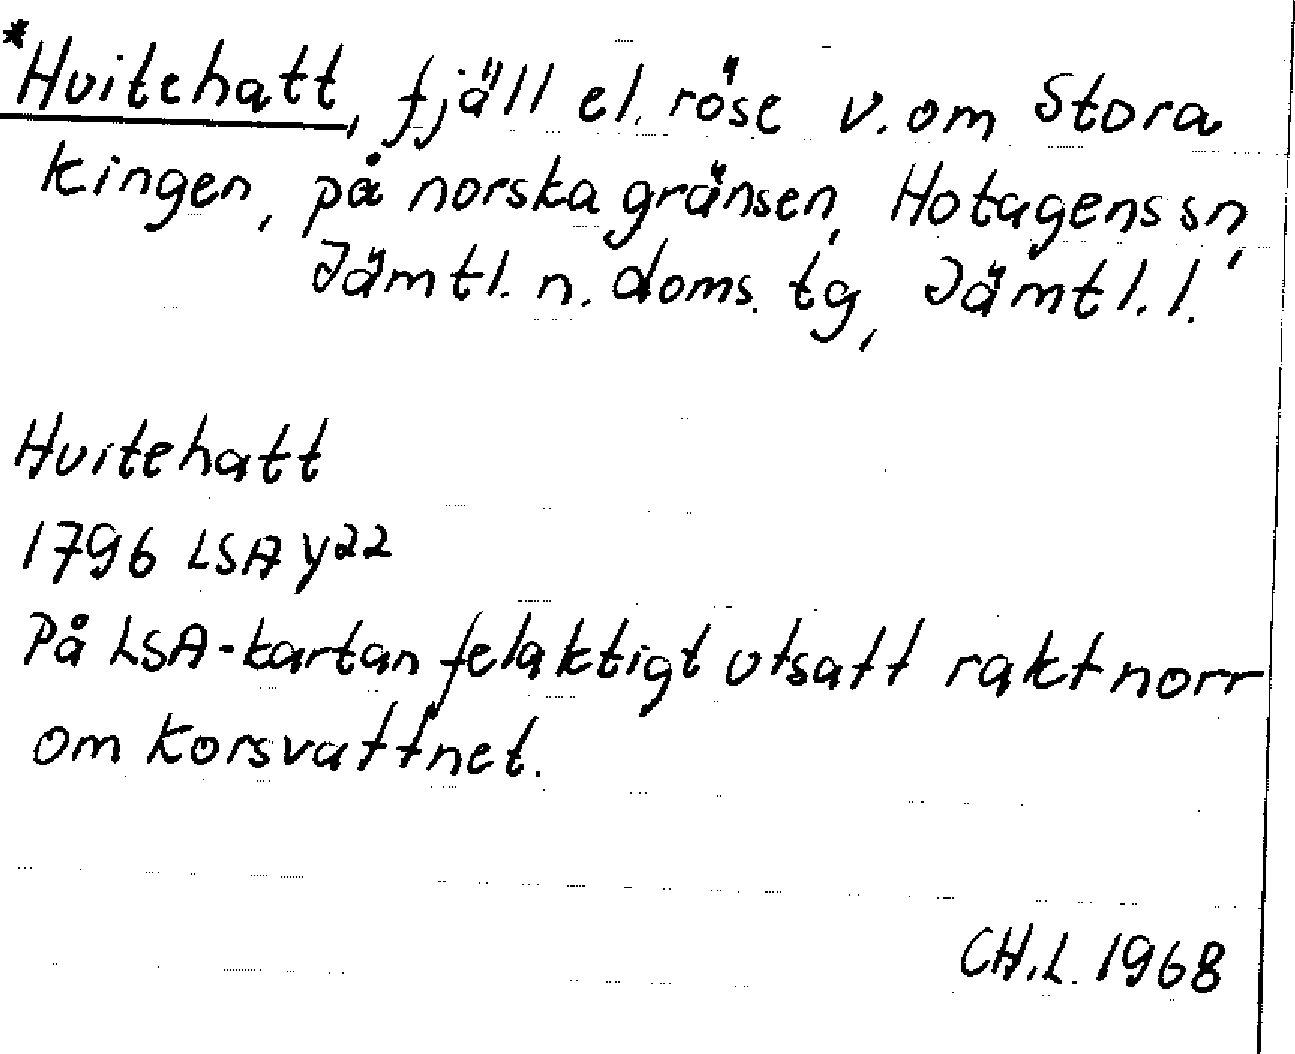 *Hvitehatt, fjäll el. röse v. om Stora
Kingen, på norska gränsen, Hotagens sn,
Jämtl. n. doms. tg, Jämtl. l.
Hvitehatt
1796 LSA Y22
På LSA-kartan felaktigt utsatt rakt norr
om Korsvattnet.
CH.L. 1968